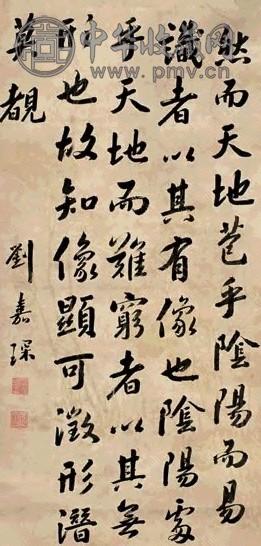 然而天地苞乎陰陽而易
識者以其有像也陰陽處
乎天地而難窮者以其無
形也故知像顯可徵形潛
莫覩
劉嘉琛
中华收藏网